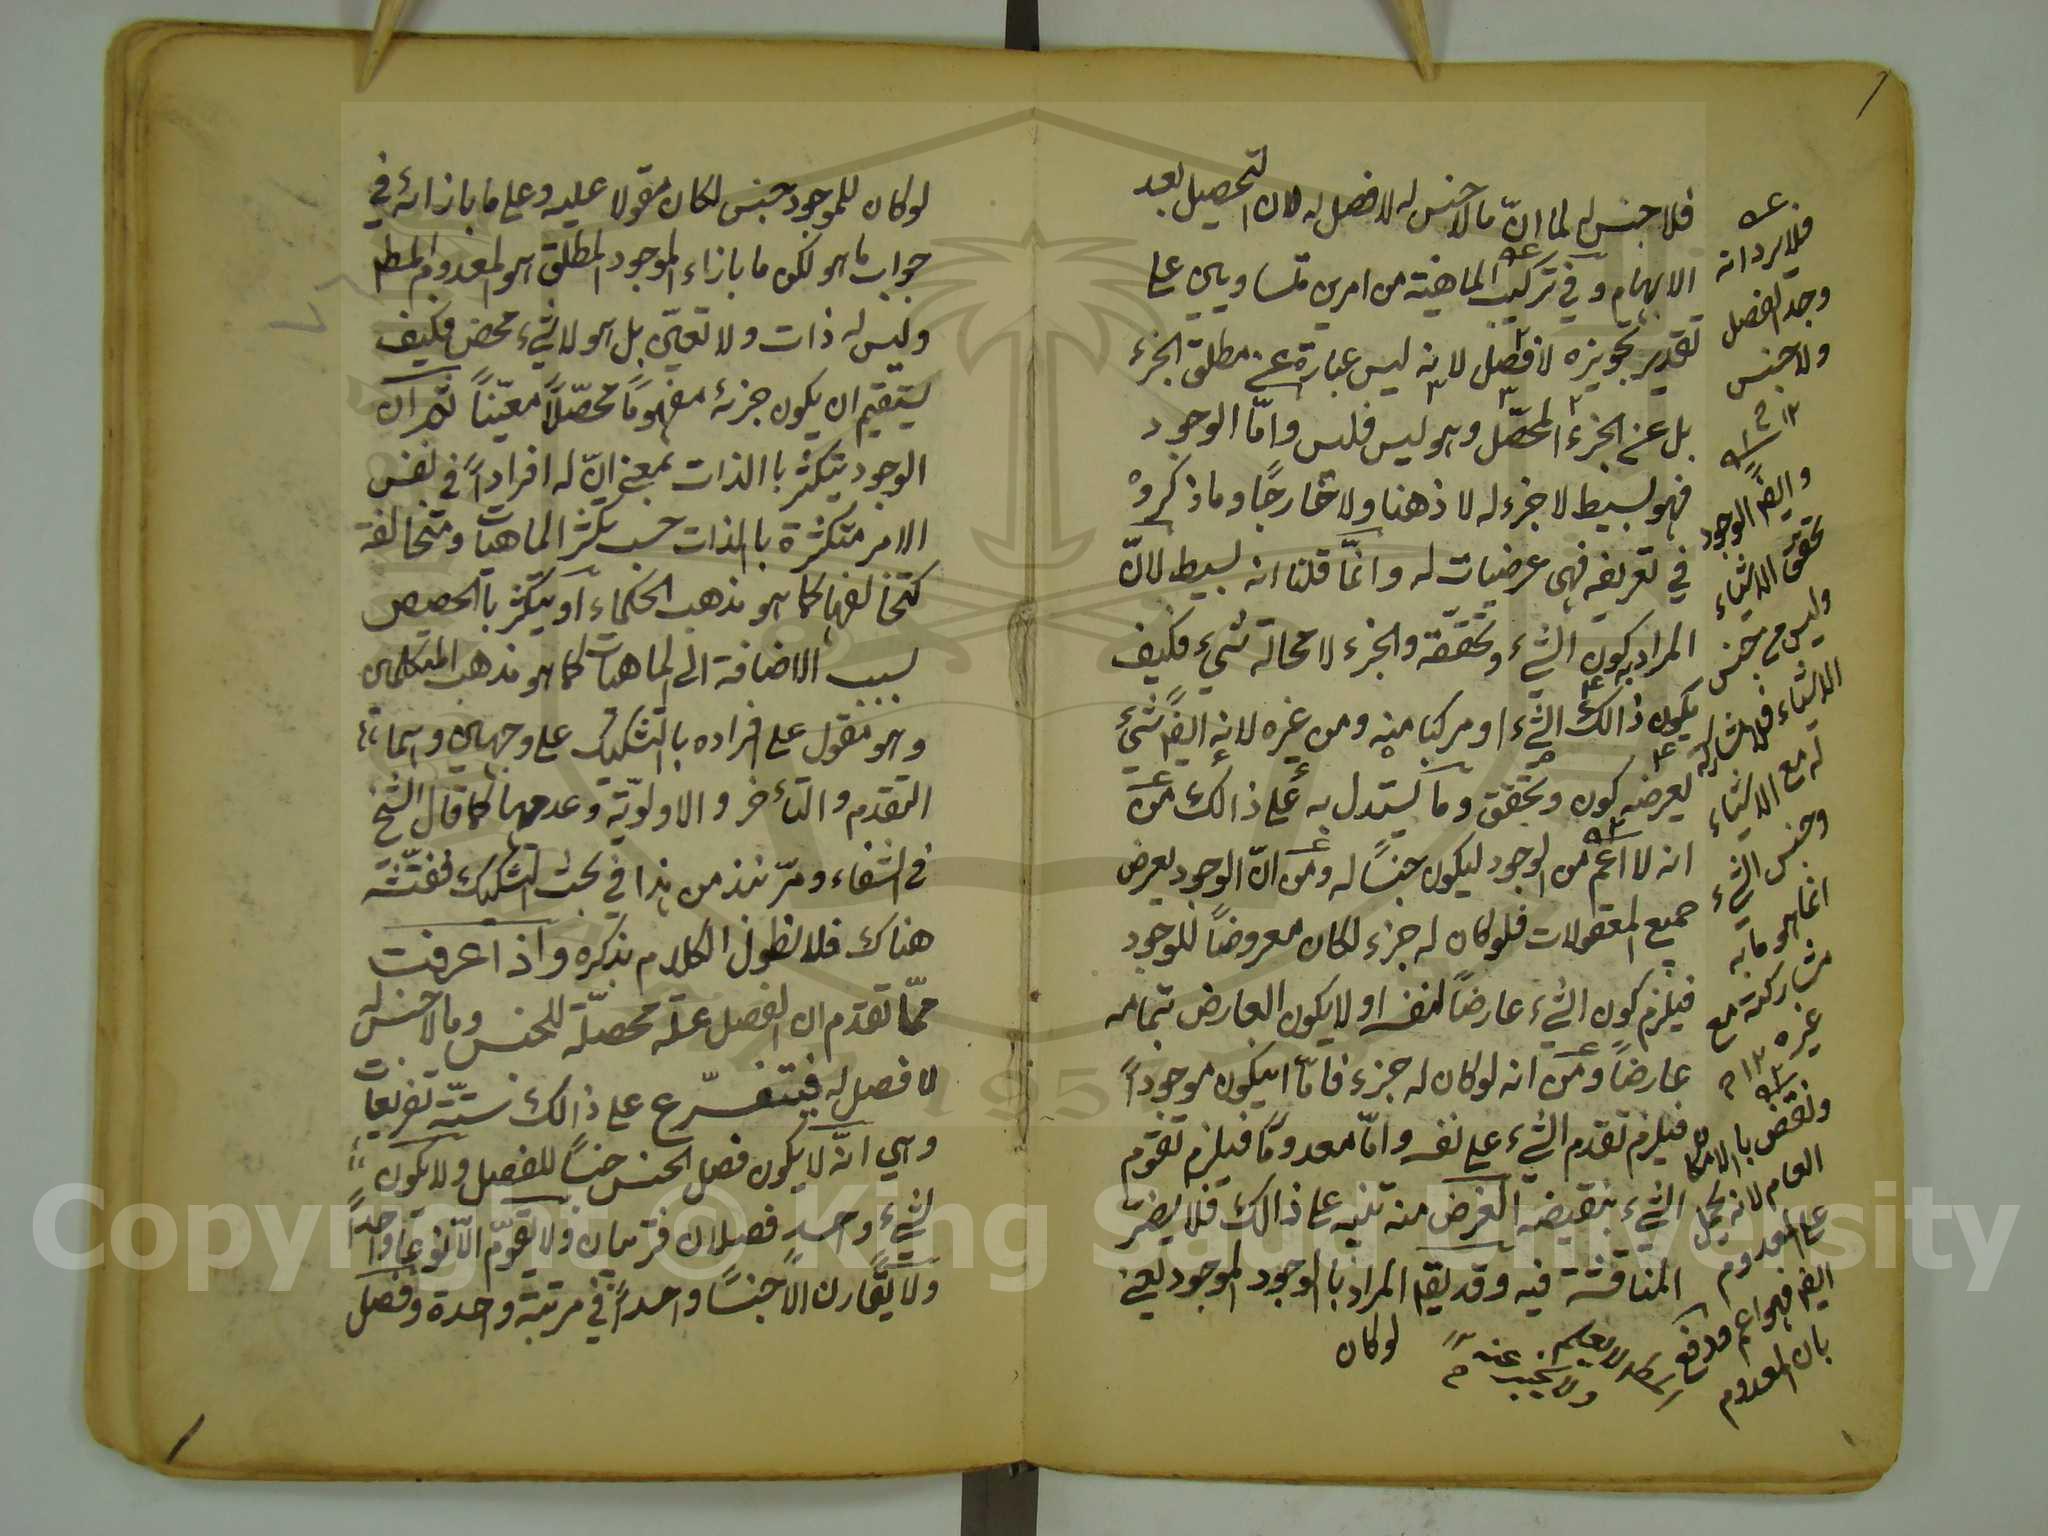 فلا جنس له لما انّ مالا جنس له لا فصل له لان التحصيل بعد
الابهام وفي تركيب الماهية من امرين متساويين على
تقدير تجويزه لا فصل لانه ليس عبارة عن مطلق الجزء
بل عن الجزء المحصّل وهو ليس فليس وامّا الوجود
فهو بسيط لا جزء له لا ذهنا ولا خارجًا وما ذكروه
في تعريفه فهي عرضيات له وانّما قلنا انه بسيط لانّ
المراد به كون الشيء وتحققه والجزء لا محالة شيء فكيف
يكون ذالك الشيء او مركبا منه ومن غيره لانه ايضً شيء
يعرضه كون وتحقق وما يستدل به على ذالك من
انه لا اعم من الوجود ليكون جنسًا له ومن انّ الوجود يعرض
جميع المعقولات فلو كان له جزء لكان معروضًا للوجود
فيلزم كون الشيء عارضًا لنفسه او لا يكون العارض بتمامه
عارضًا ومن انه لو كان له جزء فامّا ان يكون موجودًا
فيلزم تقدم الشيء على نفسه وامّا معدومًا فيلزم تقوم
الشيء بنقيضه الغرض منه تنبيه على ذالك فلا يضرّ
المناقشة فيه وقد يقم المراد بالوجود الموجود يعني
لو كان
فلا يرد انه
وجد الفصل
ولا جنس
١٢
وايضً الوجود
تحقق الاشياء
وليس من جنس
الاشياء فلا مشاركة
له مع الاشياء
وجنس الشيء
انما هو ما به
مشاركته مع
غيره ١٢ م
ونقض بالامكان
العام لانه يحمل
على المعدوم
ايضً فهو اعم ودفع
بان المعدوم
ولا يخبر عنه
لو كان للموجود جنس لكان مقولا عليه وعلى ما بازائه في
جواب ما هو لكن ما بازاء الموجود المطلق هو المعدوم المطم
وليس له ذات ولا تعيّن بل هو لا شيء محض فكيف
يستقيم ان يكون جزئه مفهومًا محصّلاً معيّنًا ثم ان
الوجود يتكثر باالذات بمعنى انّ له افرادًا في نفس
الامر متكثرة بالذات حسب تكثر الماهيات ومتخالفة
كتخالفها كما هو مذهب الحكماء او يتكثر بالحصص
بسبب الاضافة الى الماهيات كما هو مذهب المتكلمين
وهو مقول على افراده بالتشكيك على وجهين وهما
التقدم والتأخر والاولويّة وعدمها كما قال الشيخ
في الشفاء ومرّ نبذ من هذا في بحث التشكيك ففتّشه
هناك فلا نطول الكلام بذكره واذا عرفت
ممّا تقدم ان الفصل علة محصلّة للجنس ومالا جنس له
لا فصل له فيتفرّع على ذالك ستّة تفريعات
وهي انّه لا يكون فصل الجنس جنسًا للفصل ولا يكون
لشيء واحد فصلان قريبان ولا يقوّم الّا نوعًا واحدًا
ولا يقارن الا جنسًا واحدًا في مرتبة واحدة وفصل
Copyright © King Saud University
1957